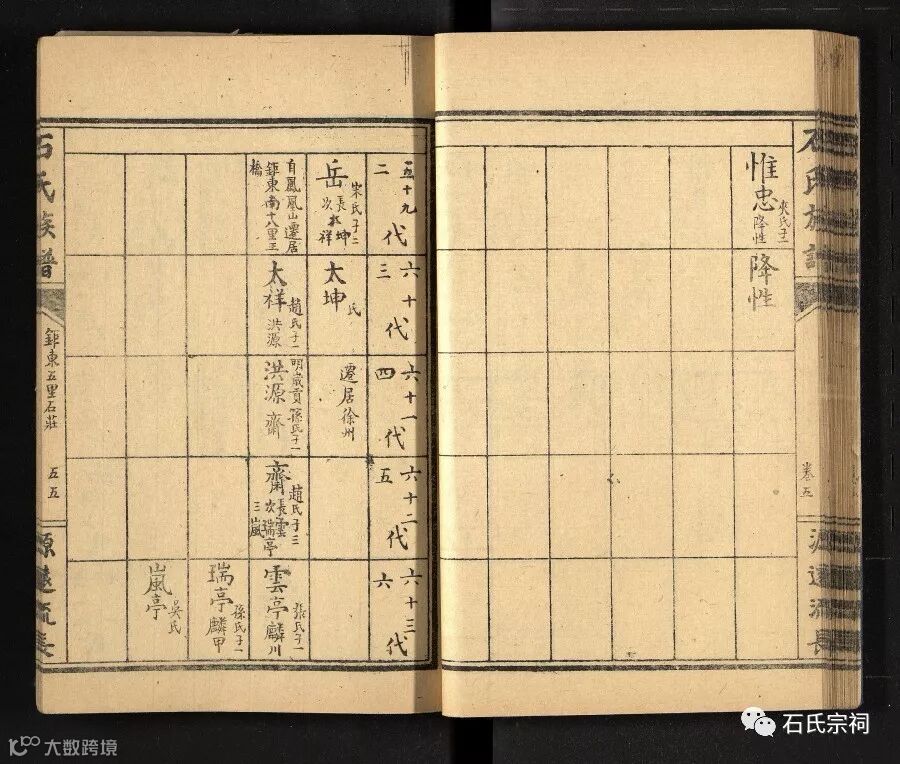 石氏族譜
卷五
源遠流長
惟忠
夾氏子二
降性
降性
五十九代
二
六十代
三
六十一代
四
六十二代
五
六十三代
六
岳
宋氏子二
長太坤
次太祥
自鳳凰山遷居
鉅東南十八里王
橋
太坤
氏
太祥
趙氏子一
洪源
遷居徐州
明歲貢孫氏子一
洪源
齋
齋
趙氏子三
長雲
次瑞亭
三嵐
雲亭
張氏子一
麟川
瑞亭
孫氏子一
麟甲
嵐亭
吳氏
石氏族譜
鉅東五里石莊
五五
源遠流長
石氏宗祠
大数跨境